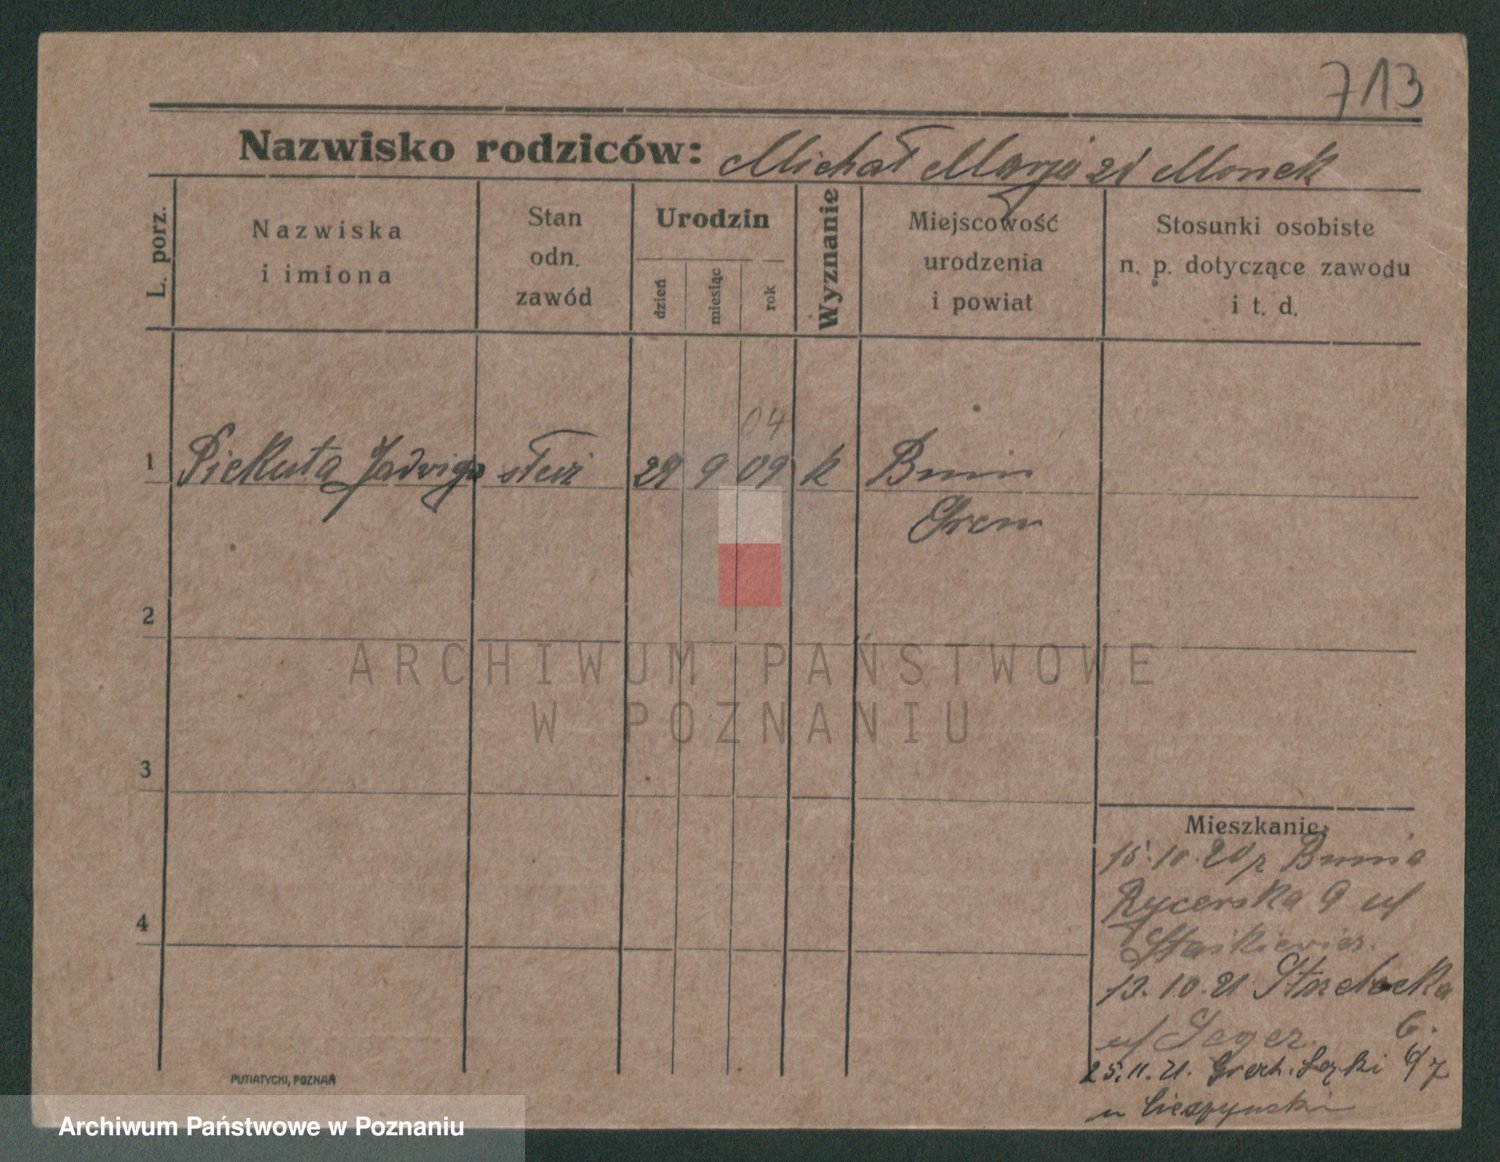 713
Nazwisko rodziców: Michał Marja zd Monek
L. porz.
Nazwiska
i imiona
Stan
odn.
zawód
Urodzin
dzień
miesiąc
rok
Wyznanie
Miejscowość
urodzenia
i powiat
Stosunki osobiste
n. p. dotyczące zawodu
i t. d.
04
1 Piekuta Jadwiga służ 29 9 09 k Bnin
Śrem
2
ARCHIWUM PAŃSTWOWE
W POZNANIU
3
Mieszkanie
15.10.20 z Bnina
4
Rycerska 9 u/
Staśkiewicz.
13.10.21
u/ Jeger. 6.
25.11.21. Groch. Łąki 6/7
u Cieszyński
PUTIATYCKI, POZNAŃ
Archiwum Państwowe w Poznaniu